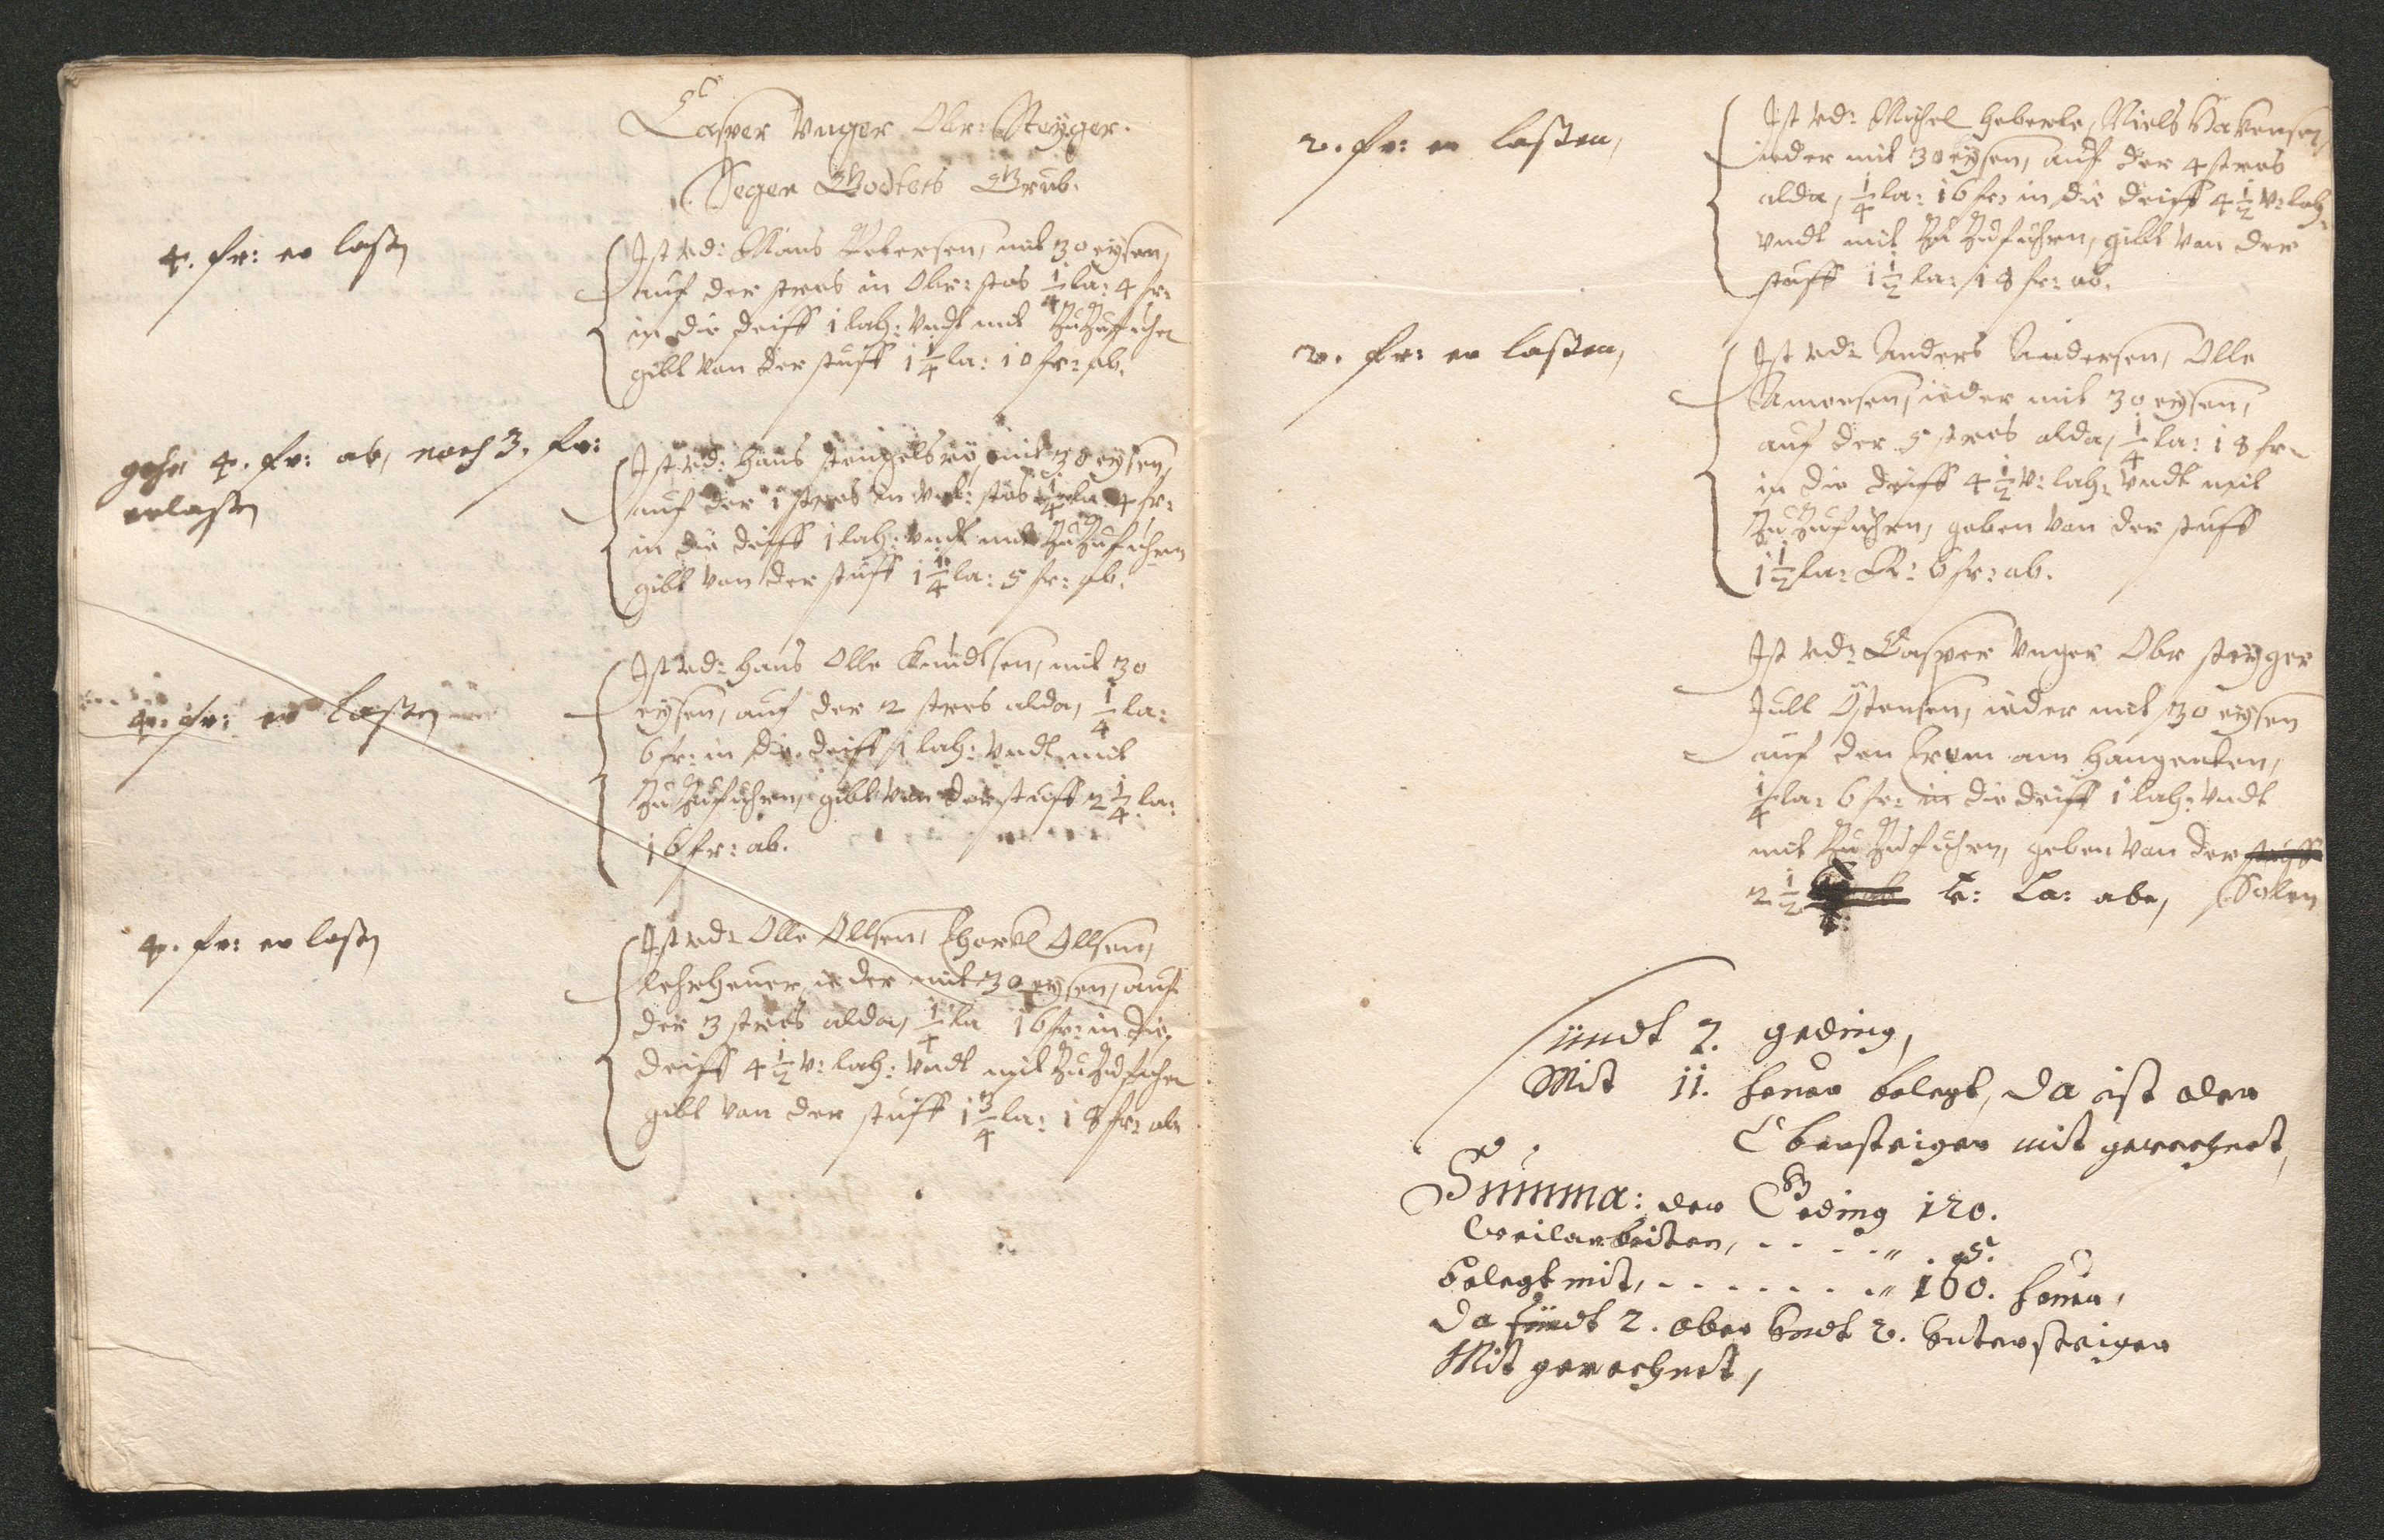 Casper Unger Obr: Steyger.
Segen Godtets Grub.
4. fr: er laßn
Ist vd: Mans Petersen, mit 30 eysen,
auf der stros in Obr: stos 1/4 la: 4 fr:
in die deiff 1 lah: vndt mit Zu Zufuhrn
gibt von der stuff 1 1/4 la: 10 fr: ab.
gehn 4. fr: ab, noch 3. fr:
erlaßn
Ist vd: Hans mit 30 eysen,
auf der 1 stros in Unt: stos 1/4 la: 4 fr:
in die deiff 1 lah: vndt mit Zu Zufuhren
gibt von der stuff 1 1/4 la: 5 fr: ab.
4. fr: er laßn
Ist vd: Hans Olle Knudtsen, mit 30
eysen, auf der 2 stros alda, 1/4 la:
6 fr: in die deiff 1 lah: vndt mit
Zu Zufuhren, gibt von der stuff 2 1/4 la:
16 fr: ab.
4. fr: er laßn
Ist vd: Olle Ollsen, Thorkel Ollsen,
lehrheuer, ieder mit 30 eysen, auf
der 3 stros alda, 1/4 la 16 fr: in die
deiff 4 1/2 v: lah: vndt mit Zu Zufuhrn
gibt von der stuff 1 3/4 la: 18 fr: abe
2. fr: er laßen,
Ist vd: Michel Heberle, Niels Hakensen,
ieder mit 30 eysen, auf der 4 stros
alda, 1/4 la: 16 fr: in die deiff 4 1/2 v: lah:
vndt mit Zu Zufuhren, gibt von der
stuff 1 1/2 la: 18 fr: ab.
2. fr: er laßen,
Ist vd: Anders Andersen, Olle
Amorsen, ieder mit 30 eysen,
auf der 5 stros alda, 1/4 la: 18 fr:
in die deiff 4 1/2 v: lah: vndt mit
Zu Zufuhren, geben von der stuff
1 1/2 la: R: 6 fr: ab.
Ist vd: Casper Unger Obr steyger
Jull Östensen, ieder mit 30 eysen
auf den Trom am hangenten,
1/4 la: 6 fr: in die deiff 1 lah: vndt
mit Zu Zufuhren, geben von der stuff
2 1/2 k: La: abe, Solen
sündt 7. geding,
Mit 11. heuer belegt, da ist der
Obersteiger mit gerechnet,
Summa: der Geding 120.
Weilarbeiten, - - - - " . 5.
belegt mit, - - - - - - - " 160. heuer,
da sündt 2. ober vndt 2. vntersteiger
Mit gerechnet,